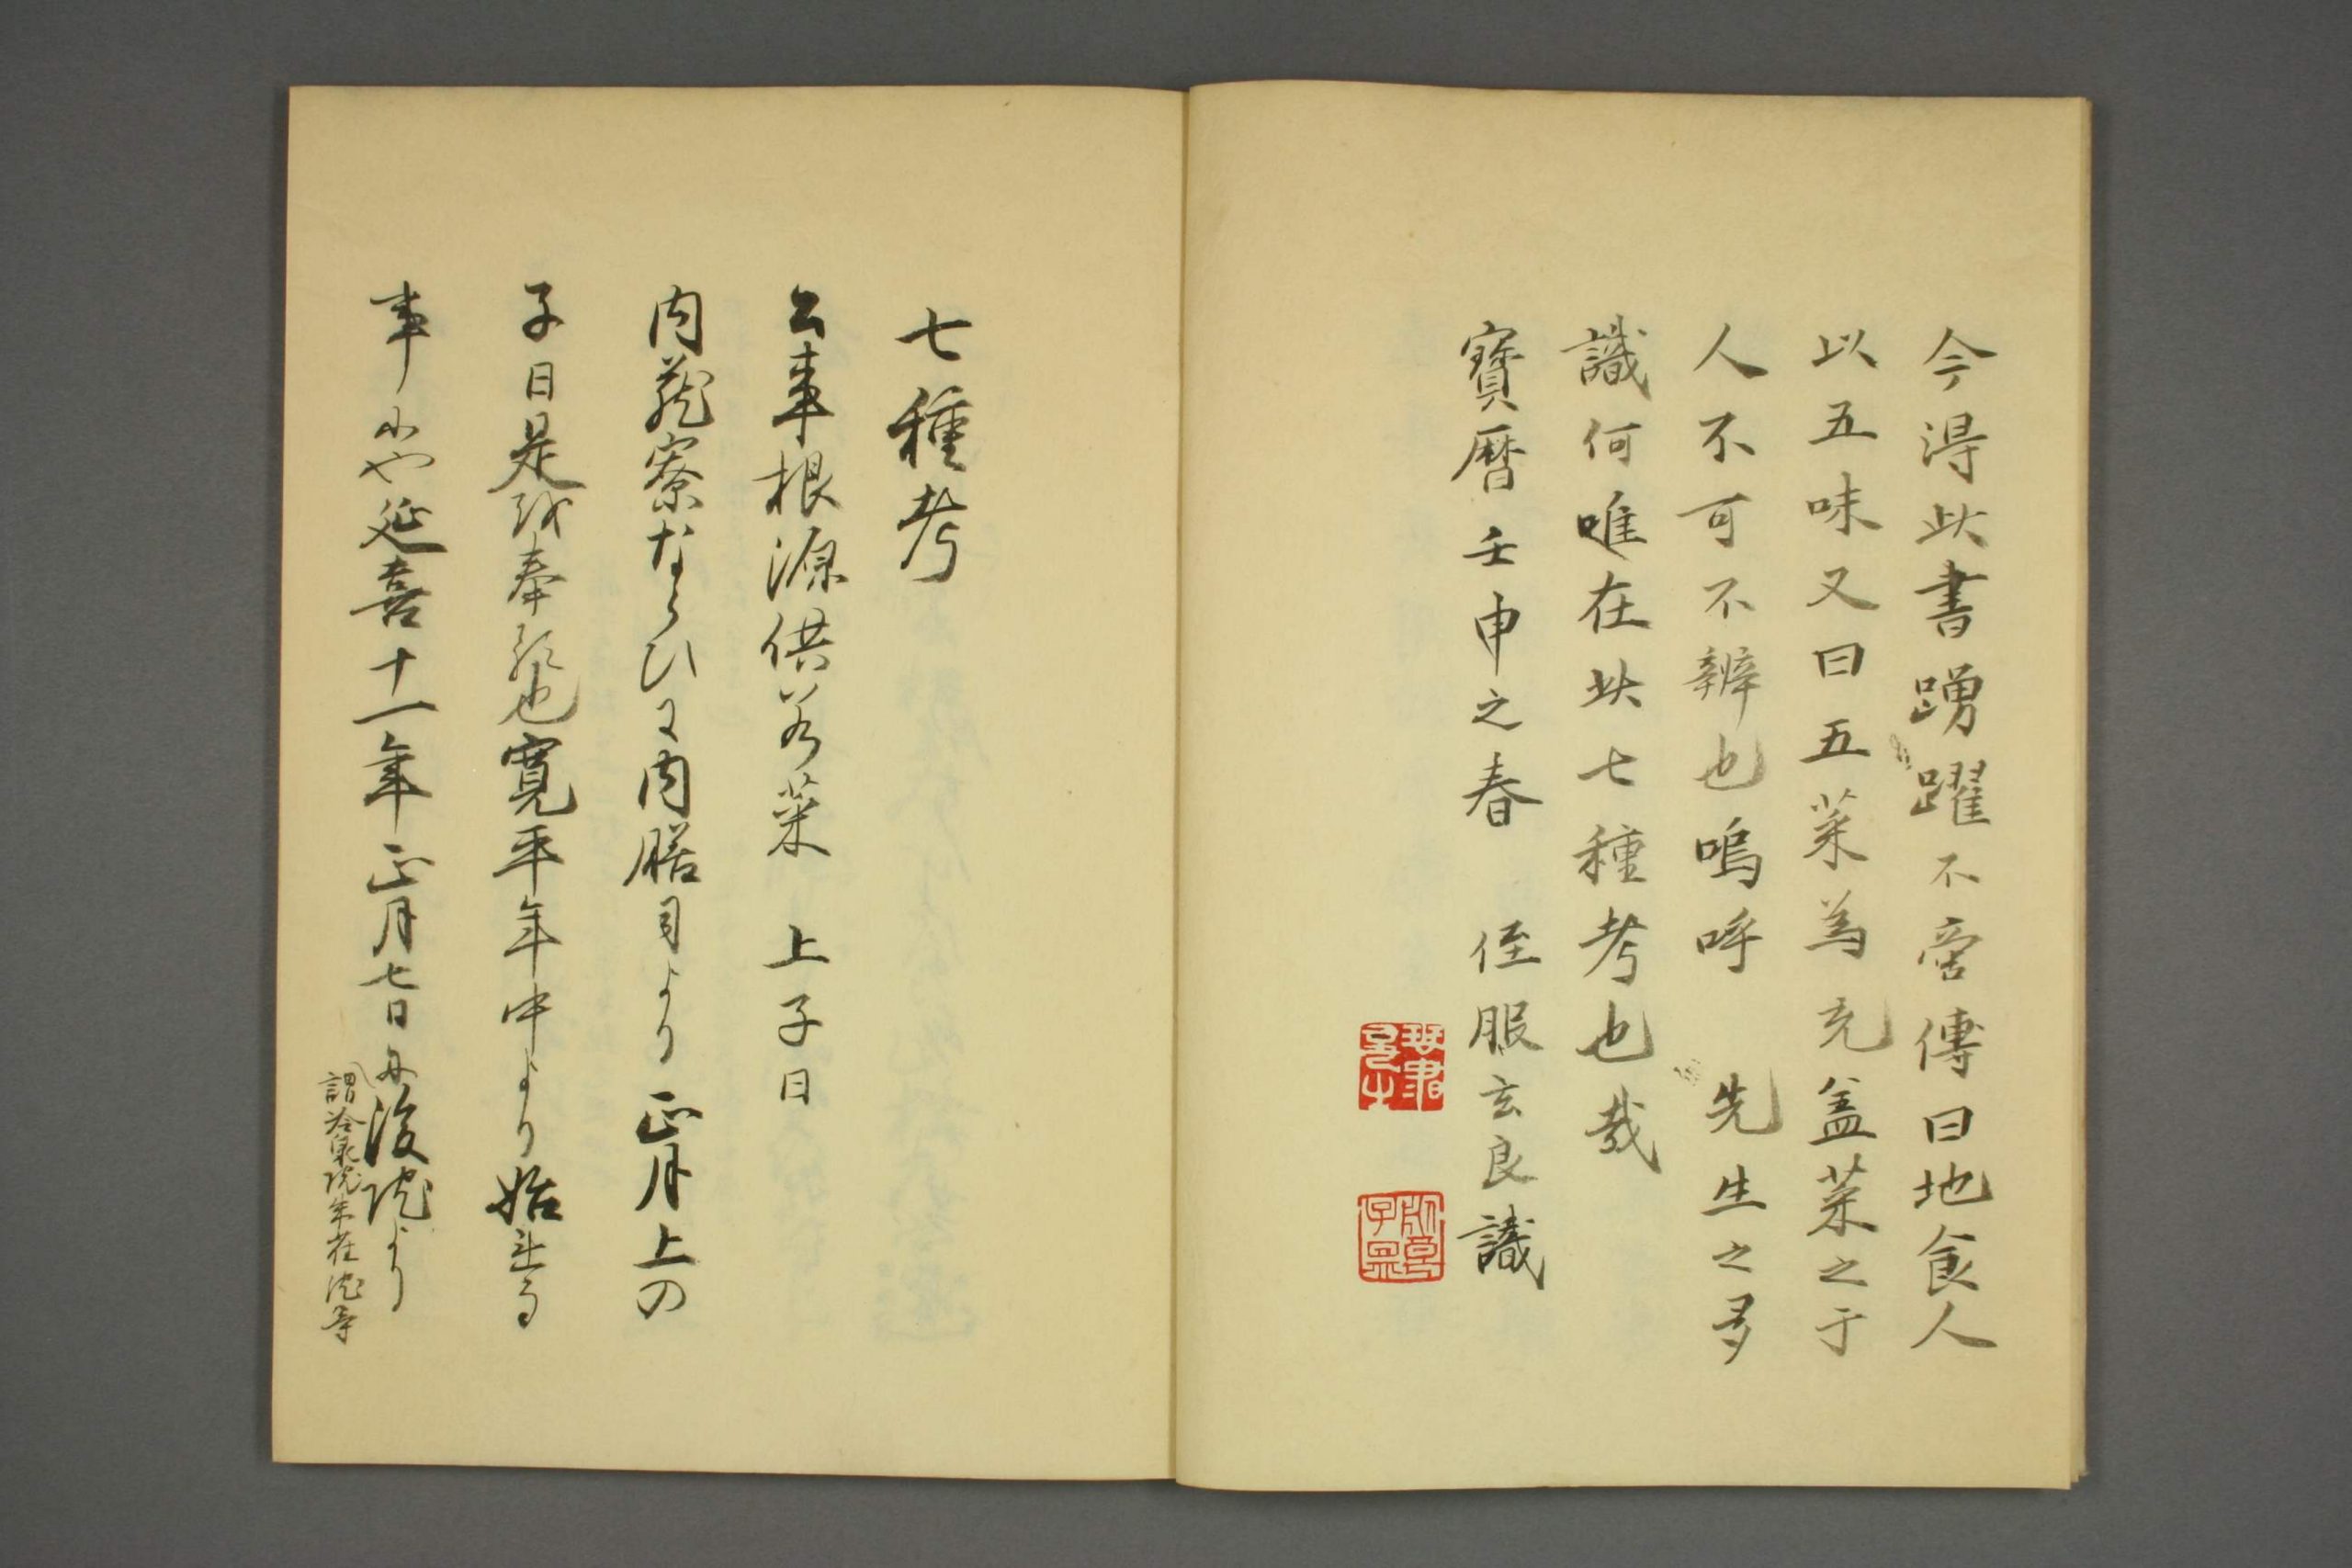 今得此書踴躍不啻傳曰地食人
以五味又曰五菜為充盖菜之于
人不可不辨也嗚呼 先生之多
識何唯在此七種考也哉
寶暦壬申之春 侄服玄良識
七種考
公事根源供若菜 上子日
内蔵寮ならひに内膳司より正月上の
子日是を奉る也寛平年中より始れる
事にや延喜十一年正月七日に後院より
謂冷泉院朱雀院等